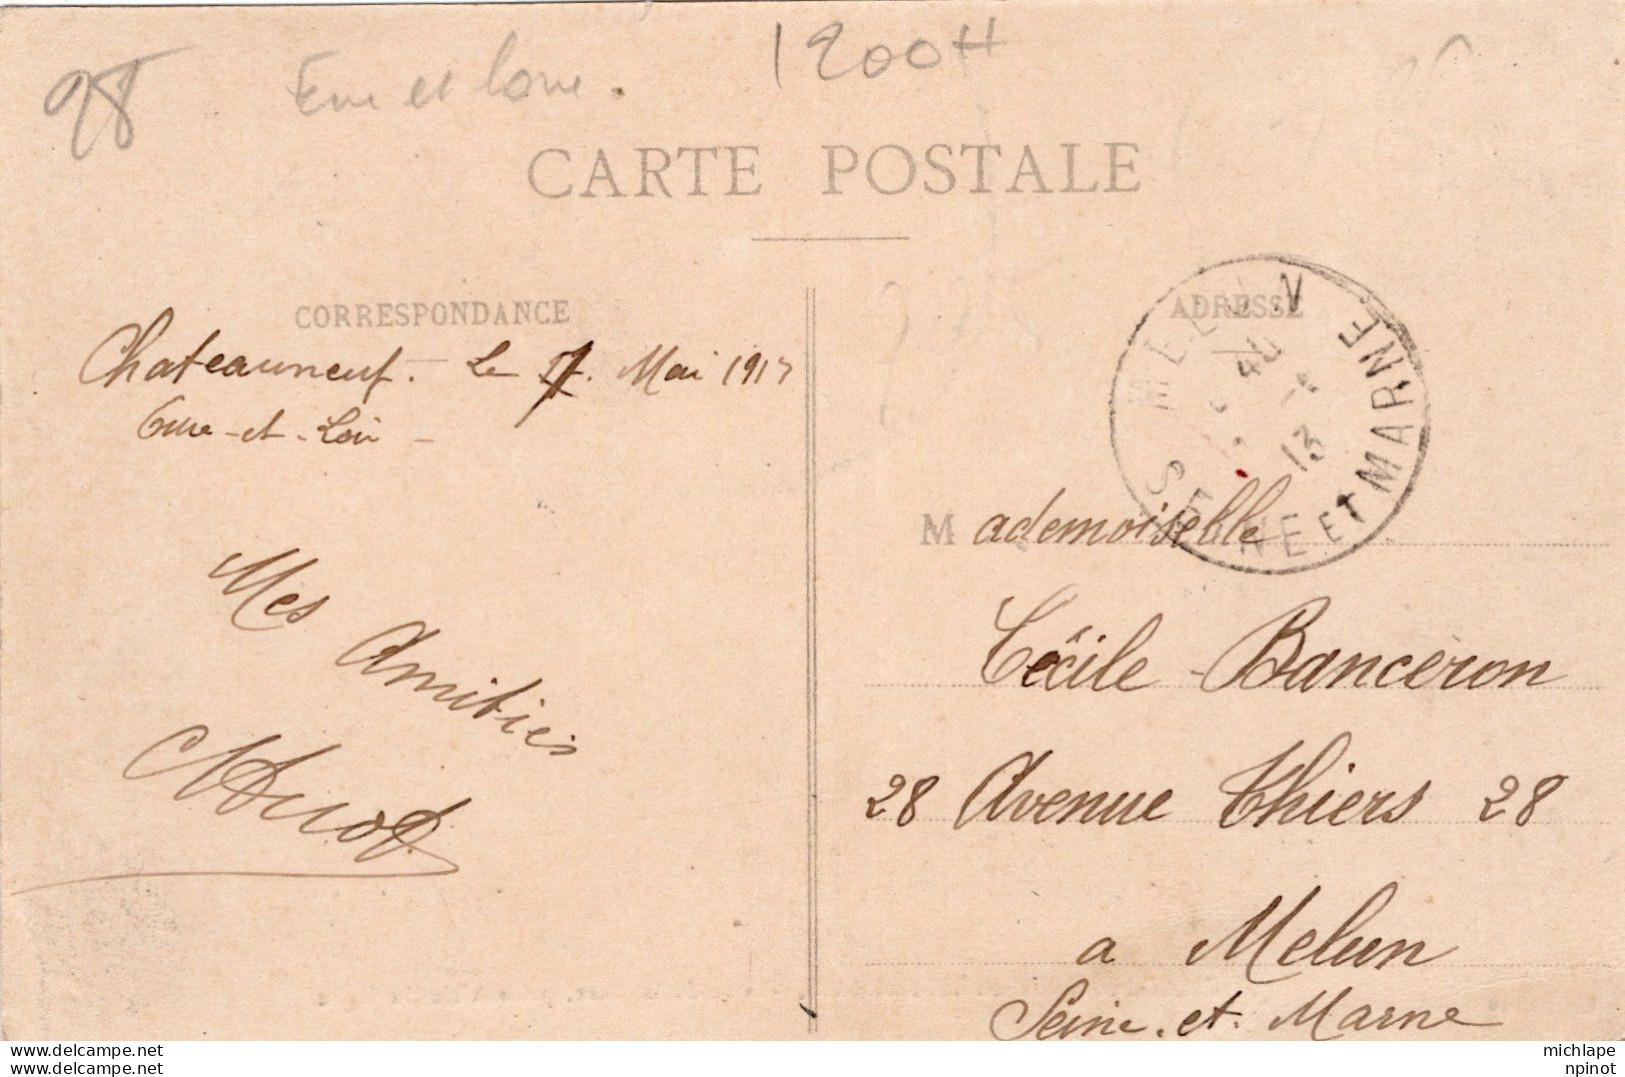 98 Eure et Loire. 1200 H
CARTE POSTALE
CORRESPONDANCE
Chateauneuf. - Le 7. Mai 1913
Eure - et - Loir -
Mes Amitiés
ADRESSE
MELUN
40
13
SEINE ET MARNE
Mademoiselle
Cécile Banceron
28 Avenue Thiers 28
a Melun
Seine. et. Marne
michlape
npinot